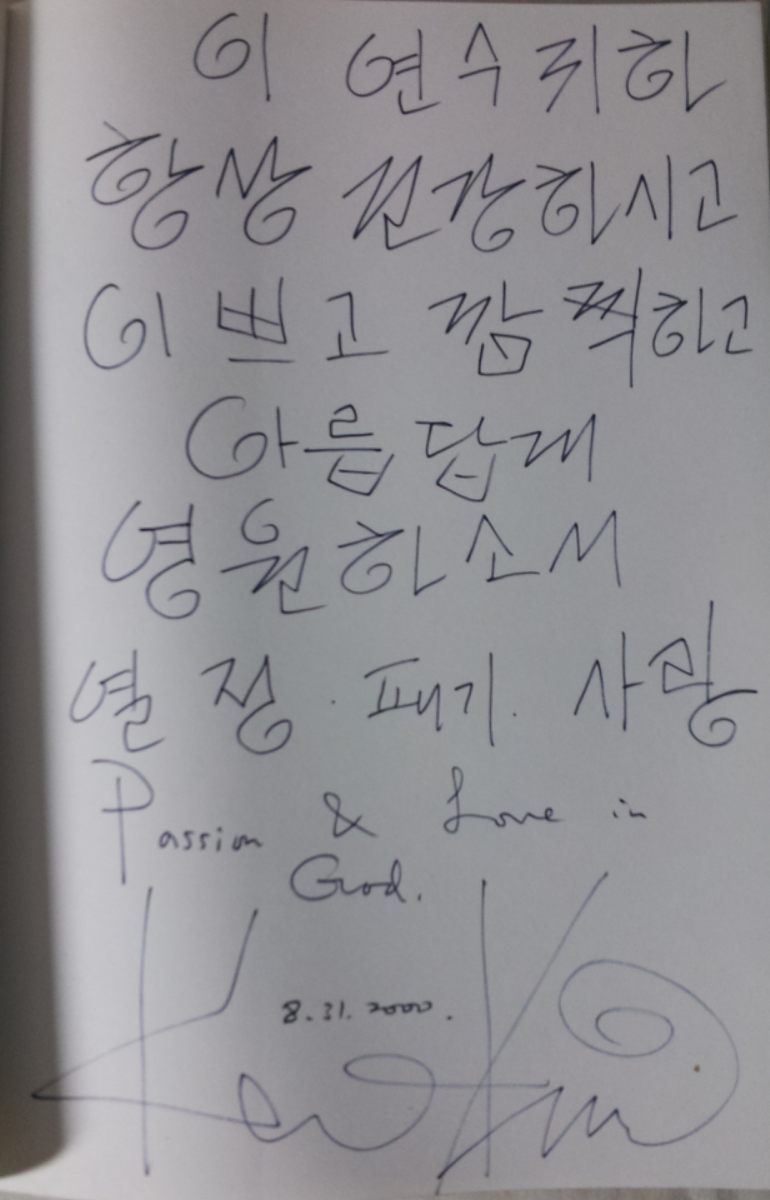 이 연수귀하
항상 건강하시고
이쁘고 깜찍하고
아름답게
영원하소서
열정 · 패기 · 사랑
Passion & Love in
God.
8.31.2000.